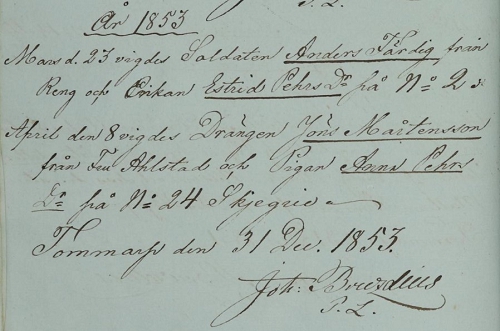 P. L.
År 1853
Mars d. 23 vigdes Soldaten Anders Färdig från
Reng och Enkan Estrid Pehrs Dr på No 2
April den 8 vigdes Drängen Jöns Mårtensson
från Fru Ahlstad och Pigan Anna Pehrs
Dr på No 24 Skjegrie
Tommarp den 31 Dec. 1853.
Joh:
P. L.